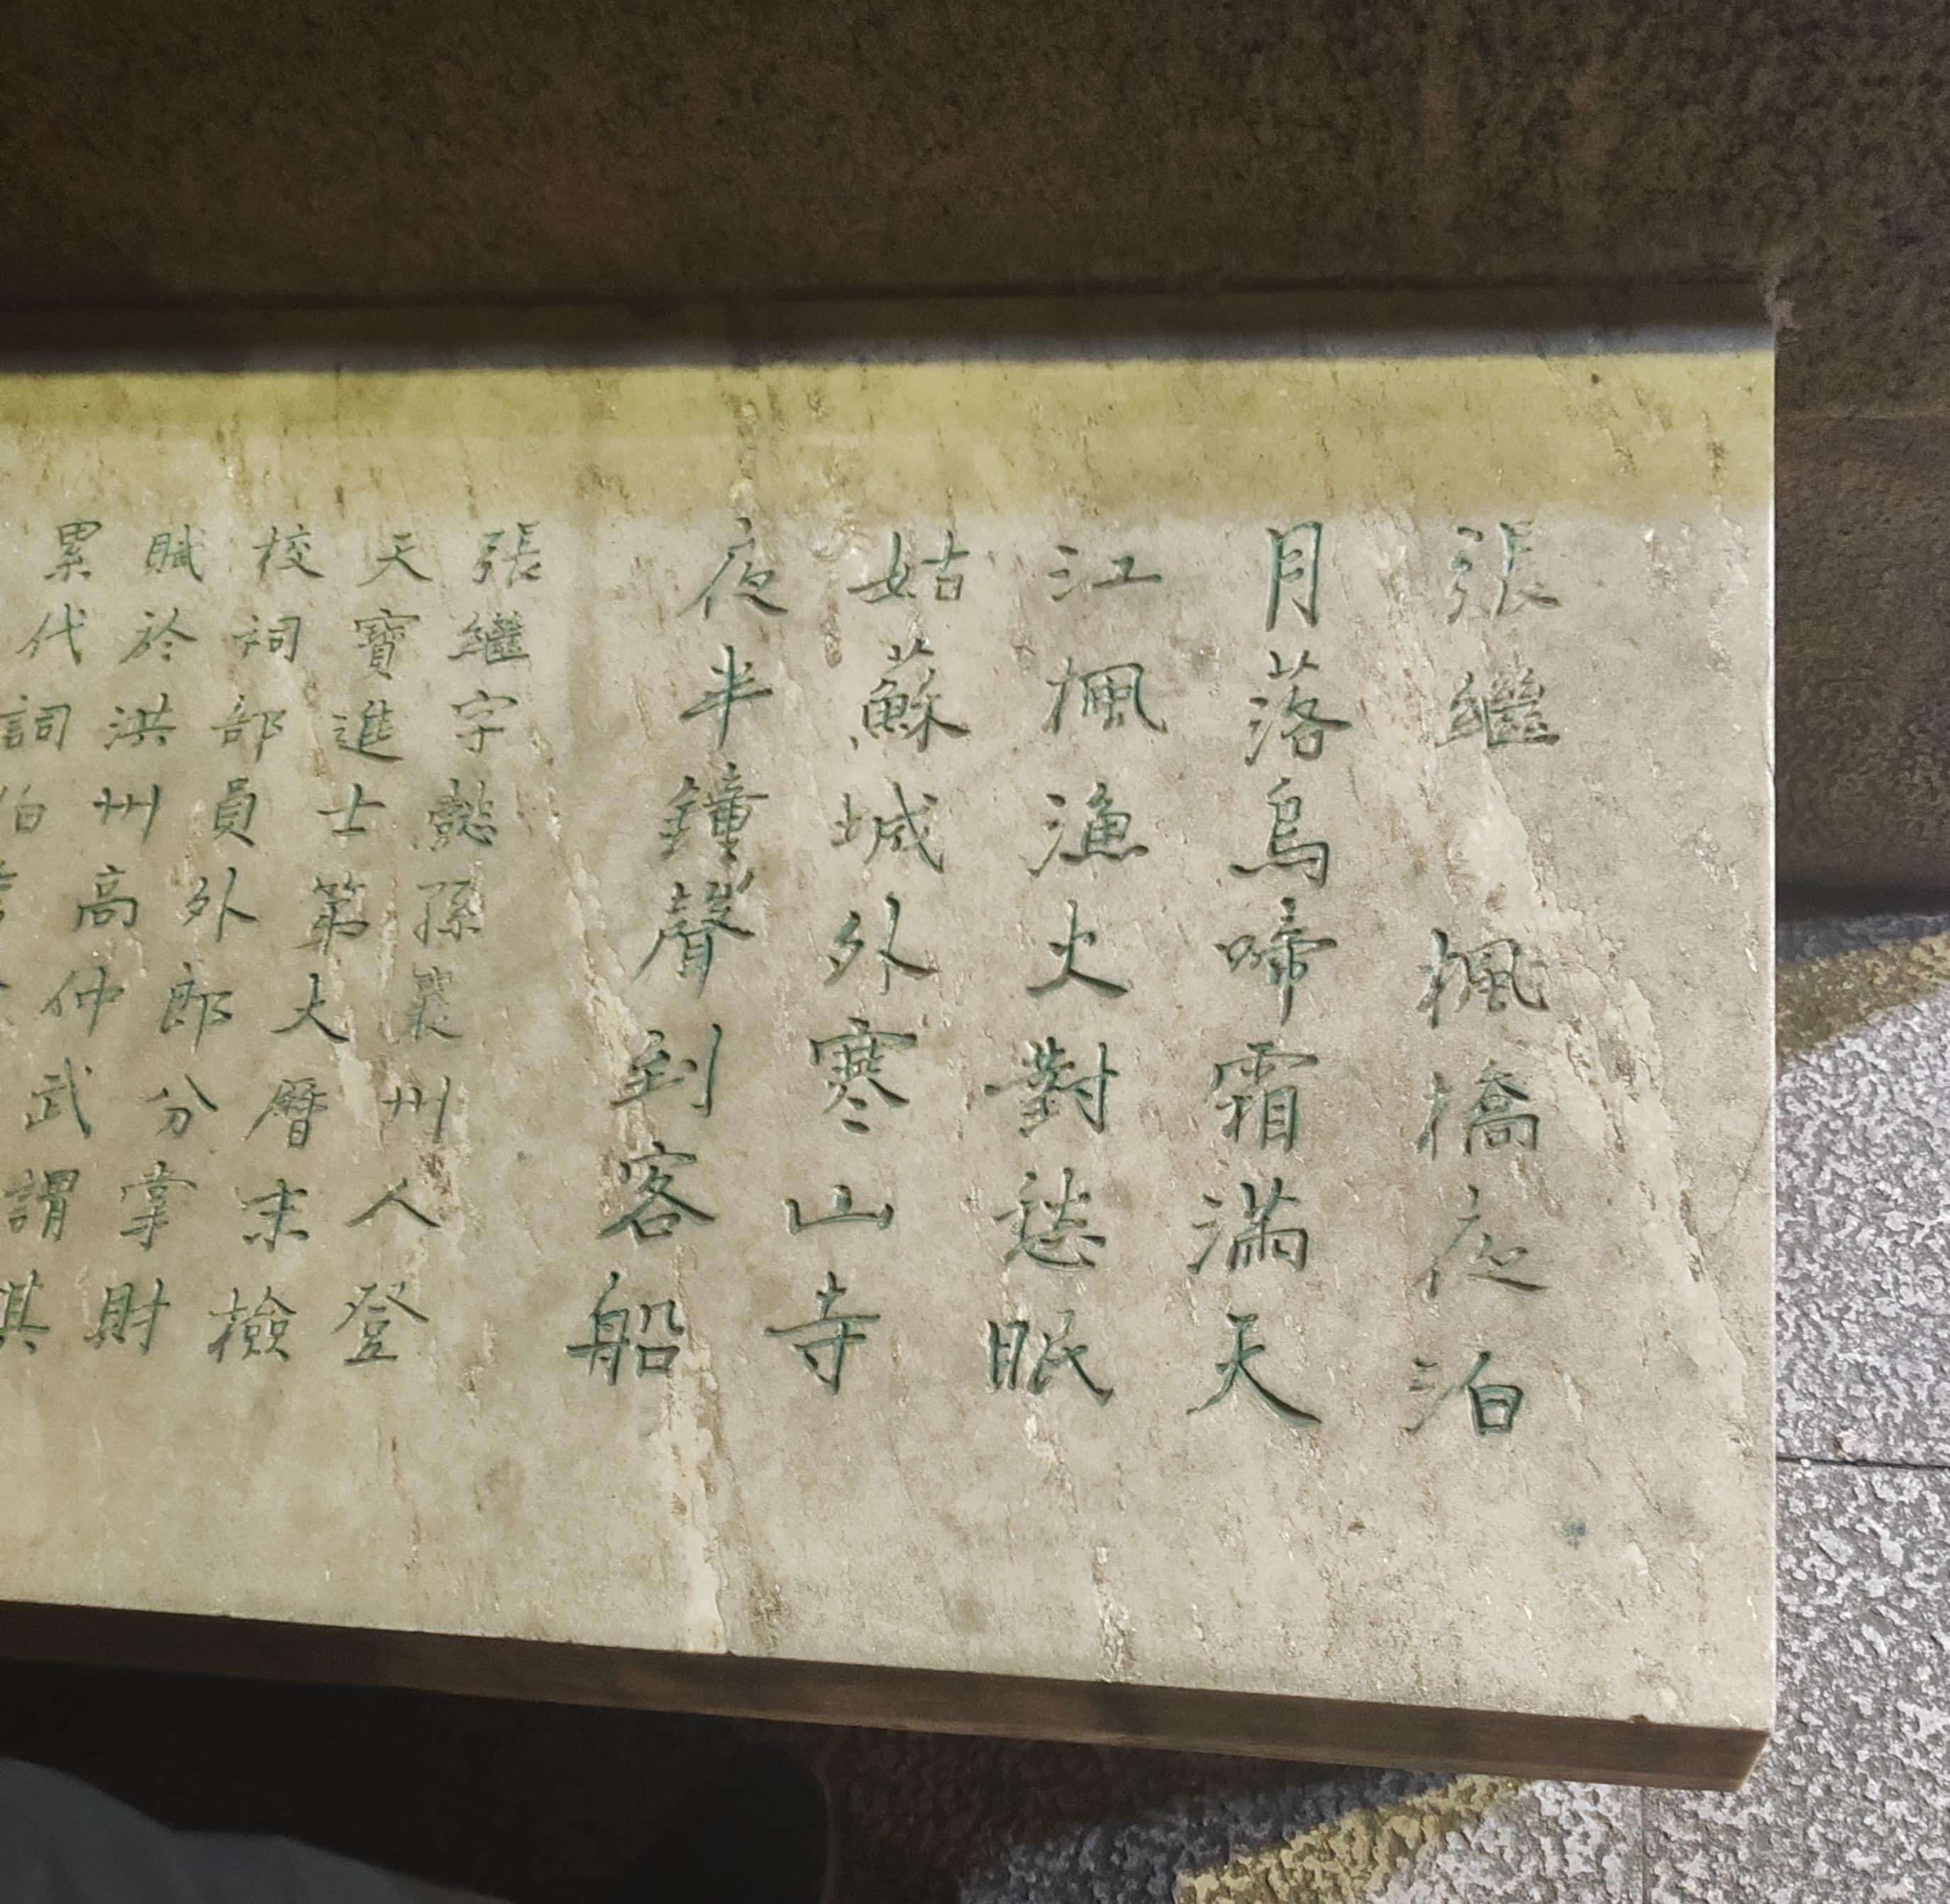 張繼 楓橋夜泊
月落烏啼霜滿天
江楓漁火對愁眠
姑蘇城外寒山寺
夜半鐘聲到客船
張繼字懿孫襄州人登
天寶進士第大曆末檢
校祠部員外郎分掌財
賦於洪州高仲武謂
累代詞伯